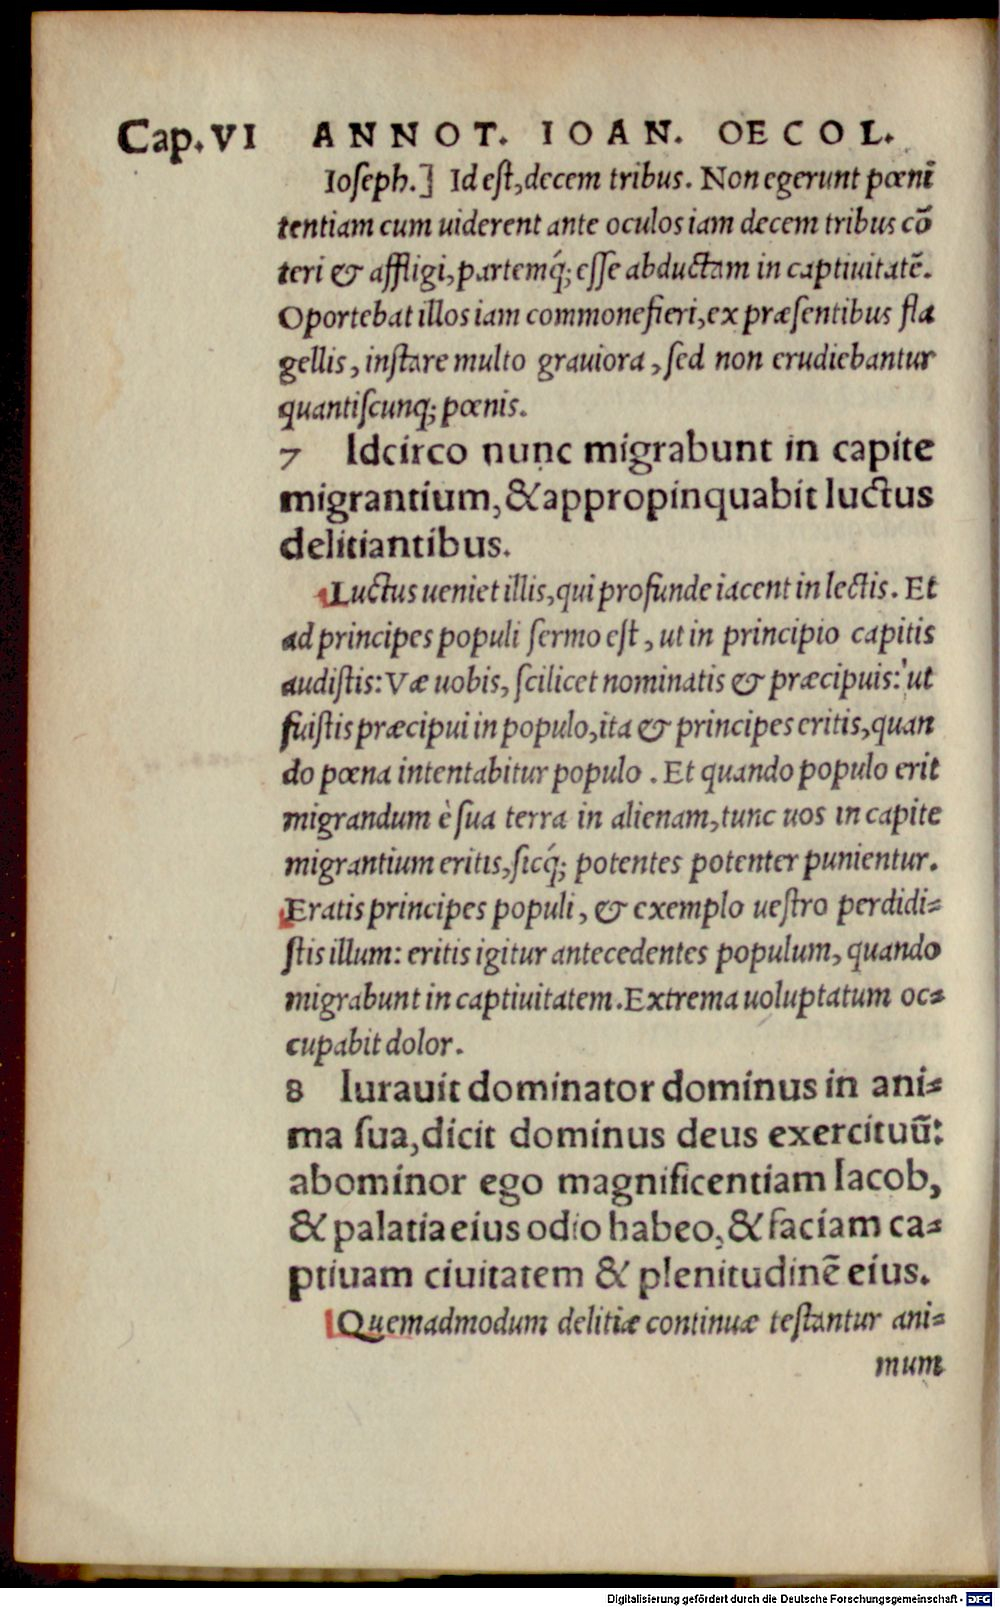 Cap. VI ANNOT. IOAN. OECOL.
Ioseph.] Id est, decem tribus. Non egerunt pœnĩ
tentiam cum uiderent ante oculos iam decem tribus cõ
teri & affligi, partemq́; esse abductam in captiuitatẽ.
Oportebat illos iam commonefieri, ex præsentibus fla
gellis, instare multo grauiora, sed non erudiebantur
quantiscunq; pœnis.
7 Idcirco nunc migrabunt in capite
migrantium, & appropinquabit luctus
delitiantibus.
Luctus ueniet illis, qui profunde iacent in lectis. Et
ad principes populi sermo est, ut in principio capitis
audistis: Væ uobis, scilicet nominatis & præcipuis: ut
fuistis præcipui in populo, ita & principes eritis, quan
do pœna intentabitur populo. Et quando populo erit
migrandum è sua terra in alienam, tunc uos in capite
migrantium eritis, sicq́; potentes potenter punientur.
Eratis principes populi, & exemplo uestro perdidi-
stis illum: eritis igitur antecedentes populum, quando
migrabunt in captiuitatem. Extrema uoluptatum oc-
cupabit dolor.
8 Iurauit dominator dominus in ani-
ma sua, dicit dominus deus exercituũ:
abominor ego magnificentiam Iacob,
& palatia eius odio habeo, & faciam ca-
ptiuam ciuitatem & plenitudinẽ eius.
Quemadmodum delitiæ continuæ testantur ani-
mum
Digitalisierung gefördert durch die Deutsche Forschungsgemeinschaft - DFG